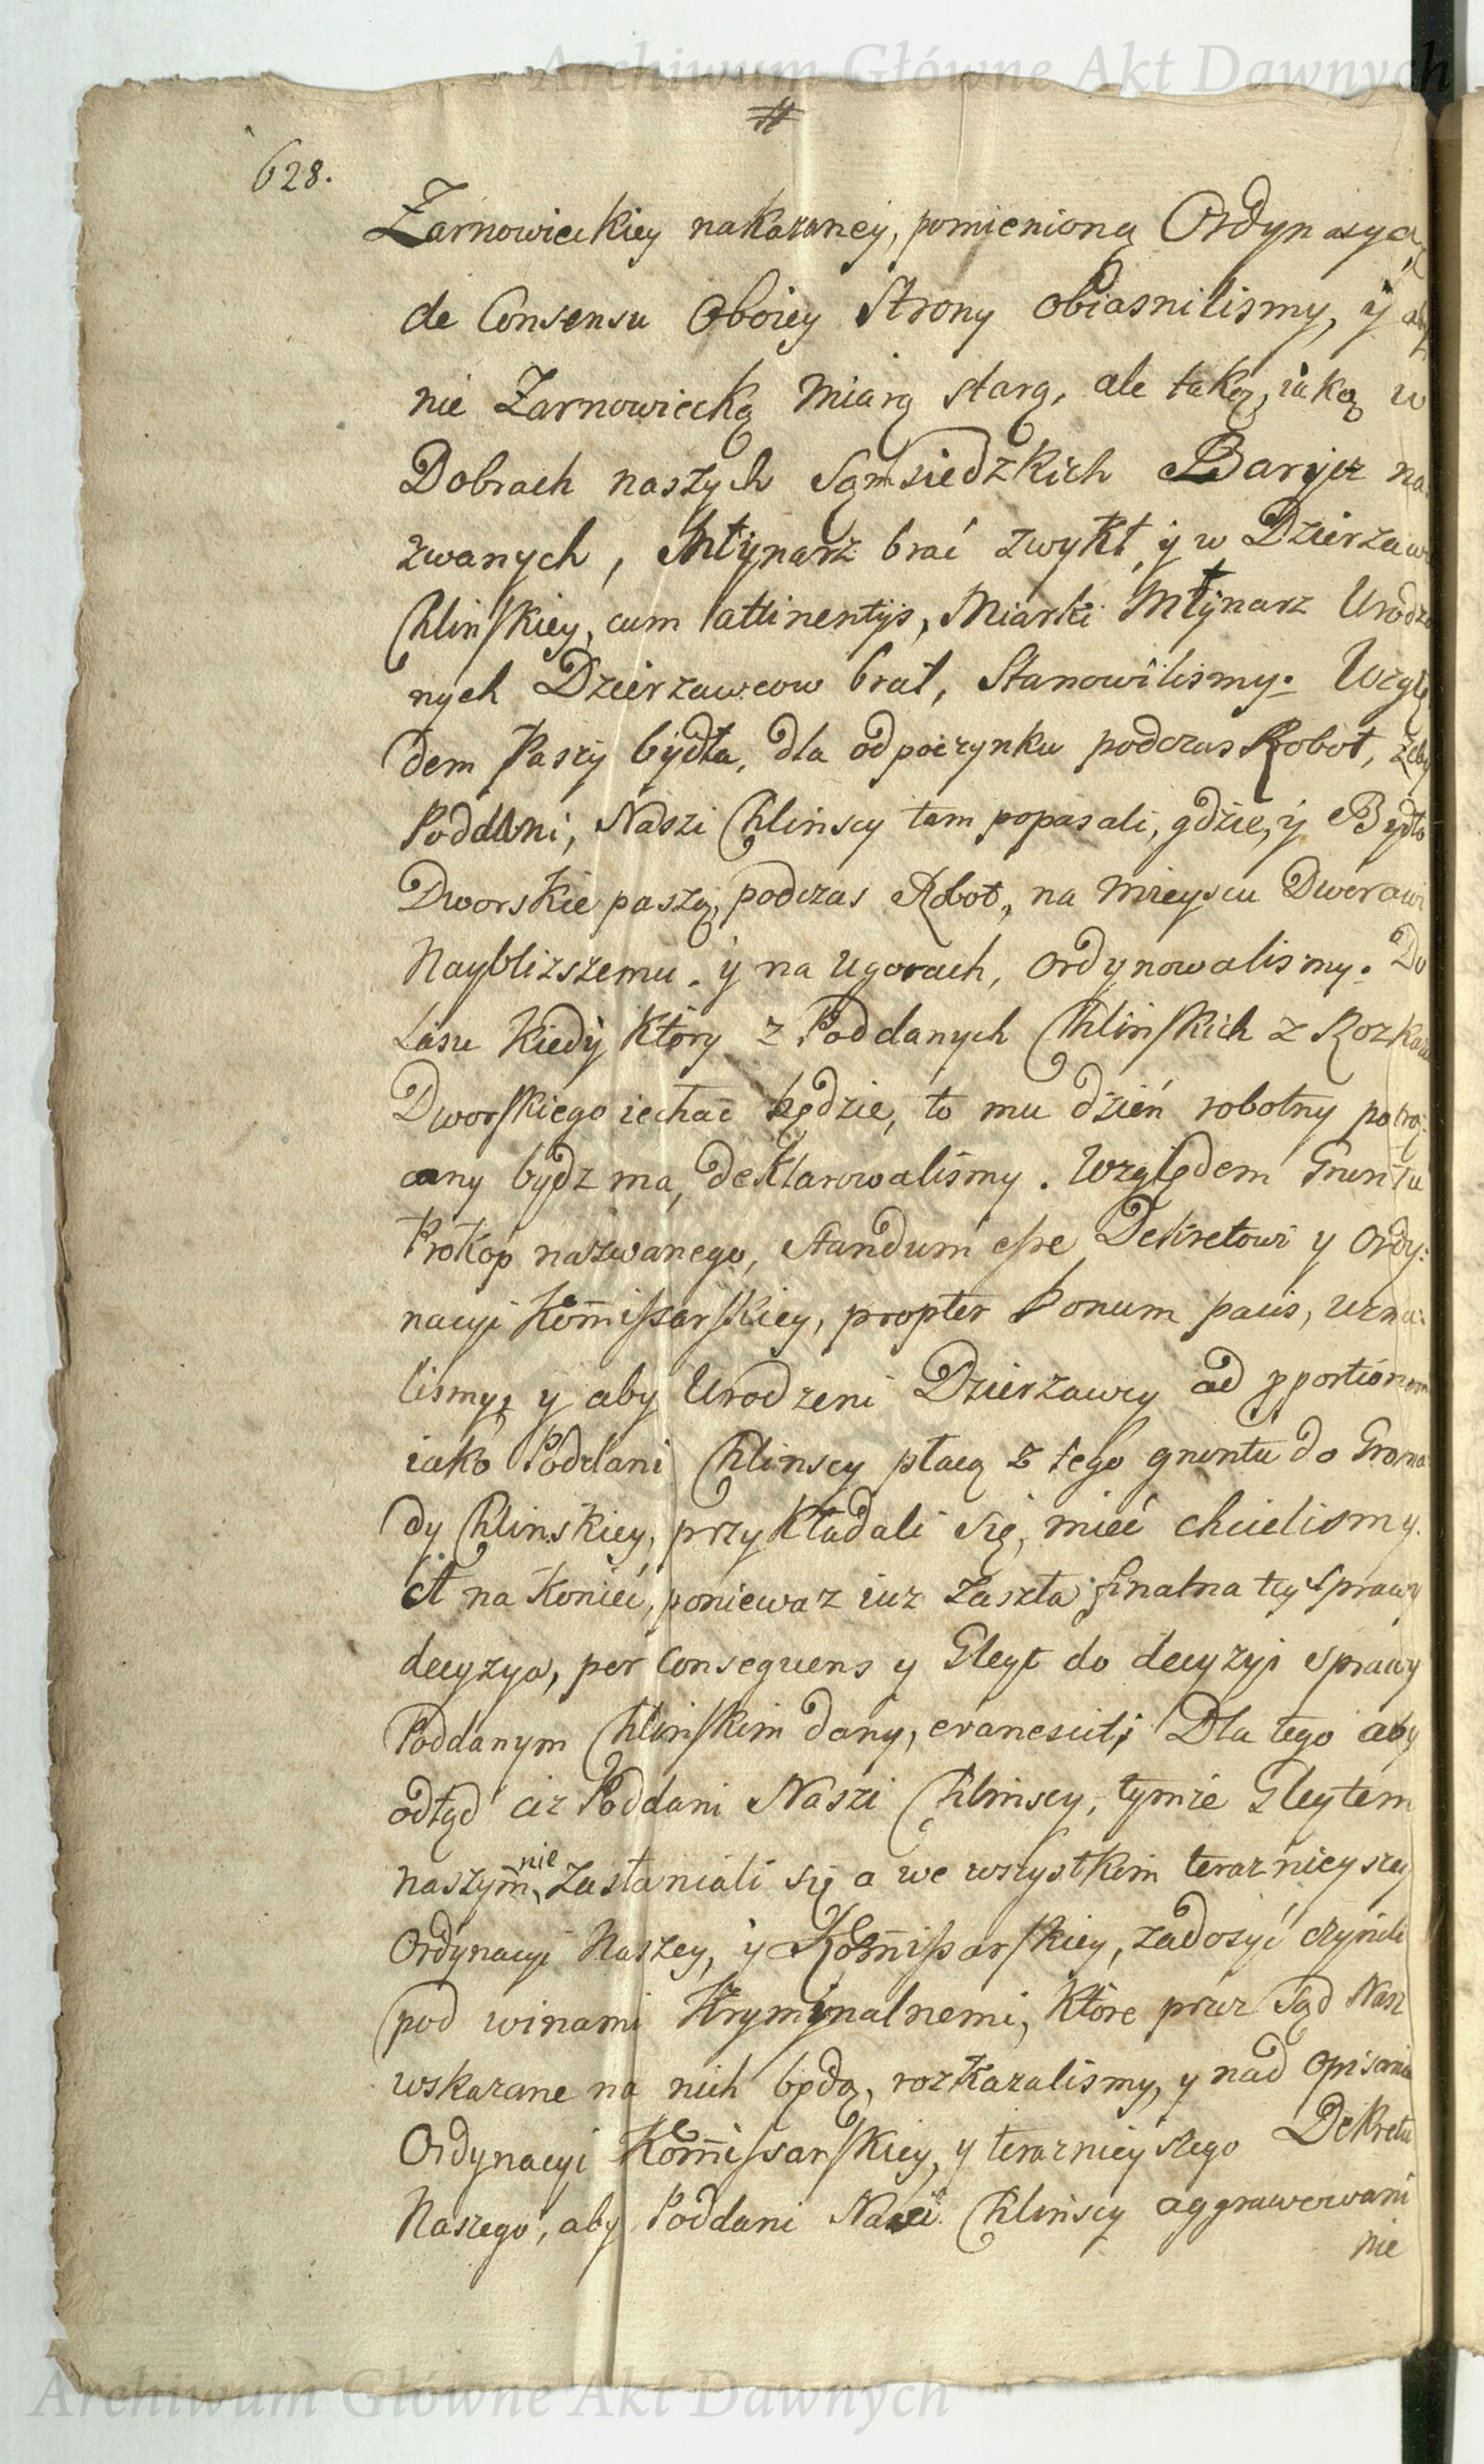 Archiwum Główne Akt Dawnych
628.
Żarnowieckiey nakazaney, pomienioną Ordynacyą,
de Consensu Oboiey Strony obiasnilismy, y aby
nie Zarnowiecką Miarą starą, ale taką, iaką w
Dobrach naszych Sąmsiedzkich Barycz na:
zwanych, Młynarz brać zwykł, y w Dzierzawie
Chlinskiey, cum attinentijs, Miarki Młynarz Urodzo
nych Dzierzawcow brał, Stanowilismy. Wzglę
dem Paszy bydła, dla odpoczynku podczas Robot, żeby
Poddani, Naszi Chlinscy tam popasali, gdzie, y Bydło
Dworskie paszą, podczas Robot, na Mieyscu Dworowi
Naybliższemu. y na Ugorach, ordynowalismy. Do
Lasu kiedy ktory z Poddanych Chlinskich z Rozkazu
Dworskiego iechać będzie, to mu dzień robotny potrą:
cany bydz ma, deklarowaliśmy. Względem Gruntu
Prokop nazwanego, standum esse Dekretowi y Ordy:
nacyi Kom̄issarskiey, propter bonum pacis, uzna:
lismy, y aby Urodzeni Dzierzawcy ad pportionem
iako Poddani Chlinscy płacą z tego gruntu do Groma
dy Chlinskiey, przykładali się, mieć chcielismy.
A na koniec, poniewaz iuz zaszła finalna tey Sprawy
decyzya, per Consequens y Gleyt do decyzyi Sprawy
Poddanym Chlinskim dany, evanescit; Dla tego aby
odtąd ciz Poddani Naszi Chlinscy, tymże Gleytem
naszym nie zastaniali się a we wszystkim teraznieyszey
Ordynacyi Naszey, y Kom̄issarskiey, zadosyć czynili
pod winami Kryminalnemi, ktore przez Sąd Nasz
wskazane na nich będą, rozkazalismy, y nad opisanie
Ordynacyi Kom̄issarskiey, y teraznieyszego Dekretu
Naszego, aby Poddani Naszi Chlinscy aggrawowani
nie
Archiwum Główne Akt Dawnych